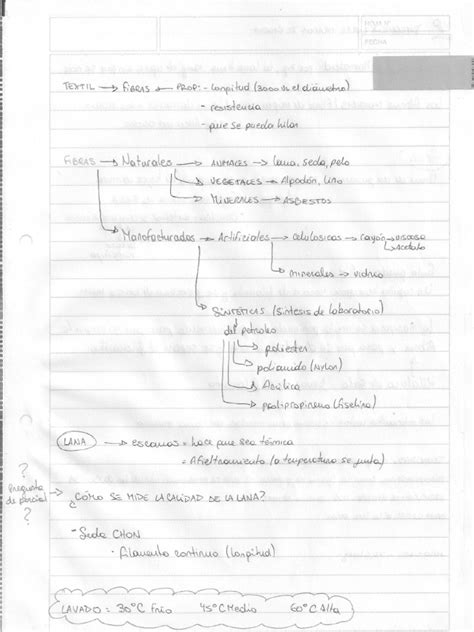 HOJA Nº
FECHA
TEXTIL → FIBRAS → PROP: - Longitud (3000 vc el diámetro)
- resistencia
- que se pueda hilar
FIBRAS → Naturales → ANIMALES → lana, seda, pelo
→ VEGETALES → Algodón, Lino
→ MINERALES → ASBESTOS
→ Manofacturados → Artificiales → celulosicas → rayón → viscosa
→ Acetato
→ minerales → vidrio
→ SINTÉTICAS (Sintesis de laboratorio)
del petroleo
→ poliester
→ poliamida (Nylon)
→ Acrilica
→ polipropineno (Fiselina)
LANA → escamas = hace que sea térmica
= Afieltramiento (a temperatura se junta)
? Pregunta de parcial ? → ¿CÓMO SE MIDE LA CALIDAD DE LA LANA?
- Seda CHON
· Filamento continuo (longitud)
LAVADO: 30°C Frio 45°C Medio 60°C Alta